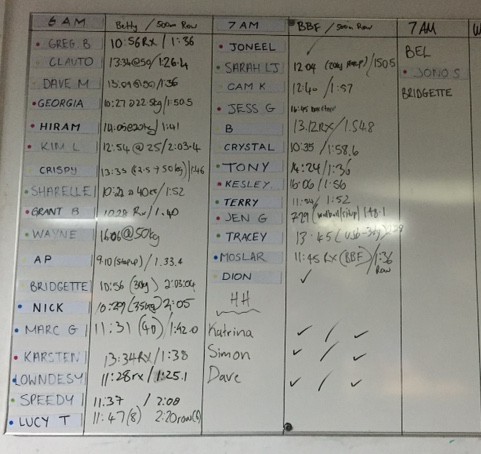 6 AM Betty / 500m Row
GREG. B 10:56 RX / 1:36
CLAUTO 13:34@50/1:26.4
DAVE M 15:09@50/1:36
GEORGIA 10:27@22.5kg/1:50.5
HIRAM 14:05@20kg/1:41
KIM L 12:54 @ 25/2:03.4
CRISPY 13:35
SHARELLE 10:22 @ 40 / 1:52
GRANT B 10:28 Rx / 1.40
WAYNE 16:06@50kg
AP 9:10 / 1.33.4
BRIDGETTE 10:56 (30kg) 2:03.04
NICK 10:29 (35kg) 2:05
MARC G 11:31 (40) / 1:42.0
KARSTEN 13:34RX / 1:38
LOWNDESY 11:28rx / 1:25.1
SPEEDY 11:37 / 2:00
LUCY T 11:47(8) 2:20row
7 AM BBF / 500m Row
JONEEL /
SARAH LJ 12 04 /1505
CAM K 12:40 / 1:57
JESS G
B 13.12RX/1.54.8
CRYSTAL 10:35 / 1:58,6
TONY 14:24 / 1:36
KESLEY. 16:06 / 1:56
TERRY 1:52
JEN G 729
TRACEY 13
MOSLAR 11:45 RX (BBF) / 1:36 Row
DION ✓
HH
Katrina ✓ / ✓
Simon ✓ / ✓
Dave ✓ / ✓
7 AM
BEL
JONO S
BRIDGETTE